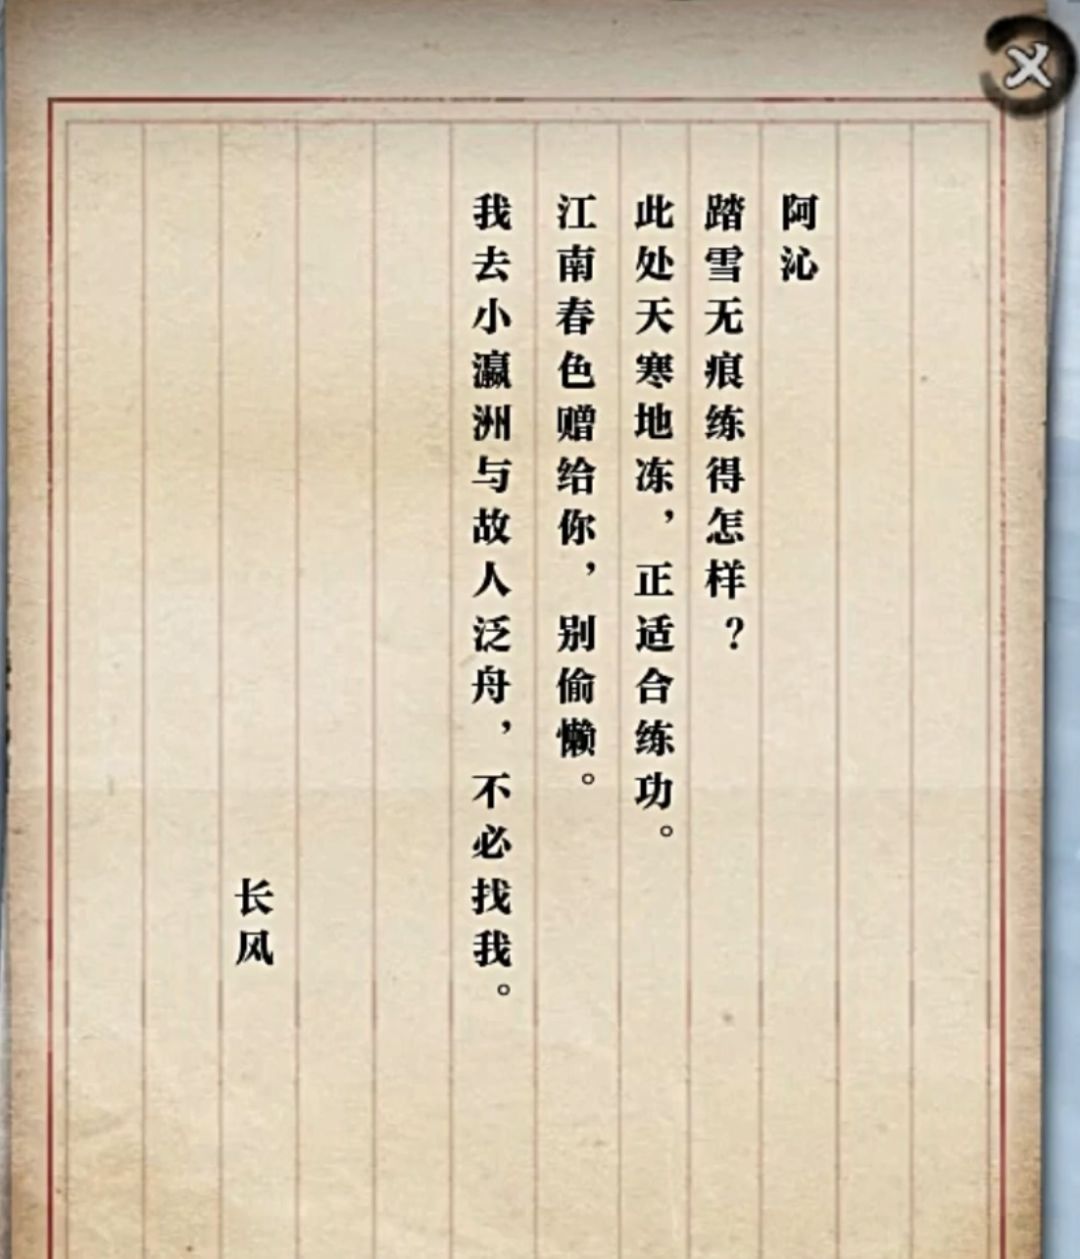 阿沁
踏雪无痕练得怎样？
此处天寒地冻，正适合练功。
江南春色赠给你，别偷懒。
我去小瀛洲与故人泛舟，不必找我。
长风